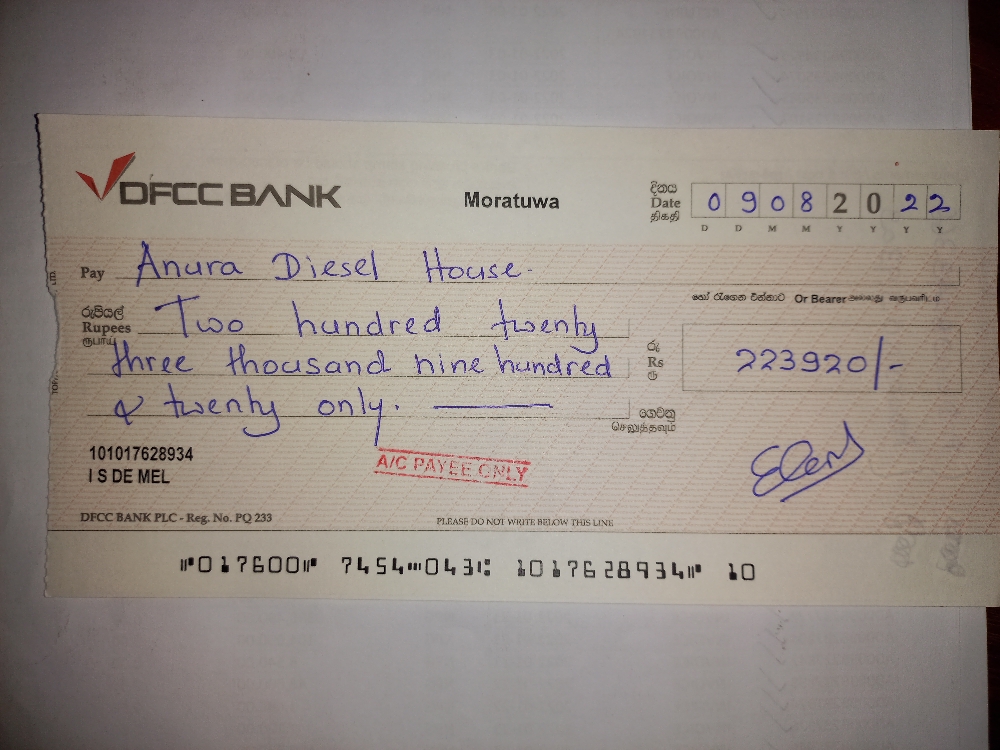 DFCC BANK
Moratuwa
දිනය
Date
திகதி
0 9 0 8 2 0 2 2
D D M M Y Y Y Y
Pay Anura Diesel House.
හෝ රැගෙන එන්නාට Or Bearer அல்லது வருபவரிடம்
රුපියල්
Rupees
ரூபாய்
Two hundred twenty
three thousand nine hundred
& twenty only.
රු
Rs
ரூ
223920/-
ගෙවනු
செலுத்தவும்
101017628934
I S DE MEL
A/C PAYEE ONLY
DFCC BANK PLC - Reg. No. PQ 233
PLEASE DO NOT WRITE BELOW THIS LINE
⑈017600⑈ 7454⑉043⑆ 1017628934⑈ 10